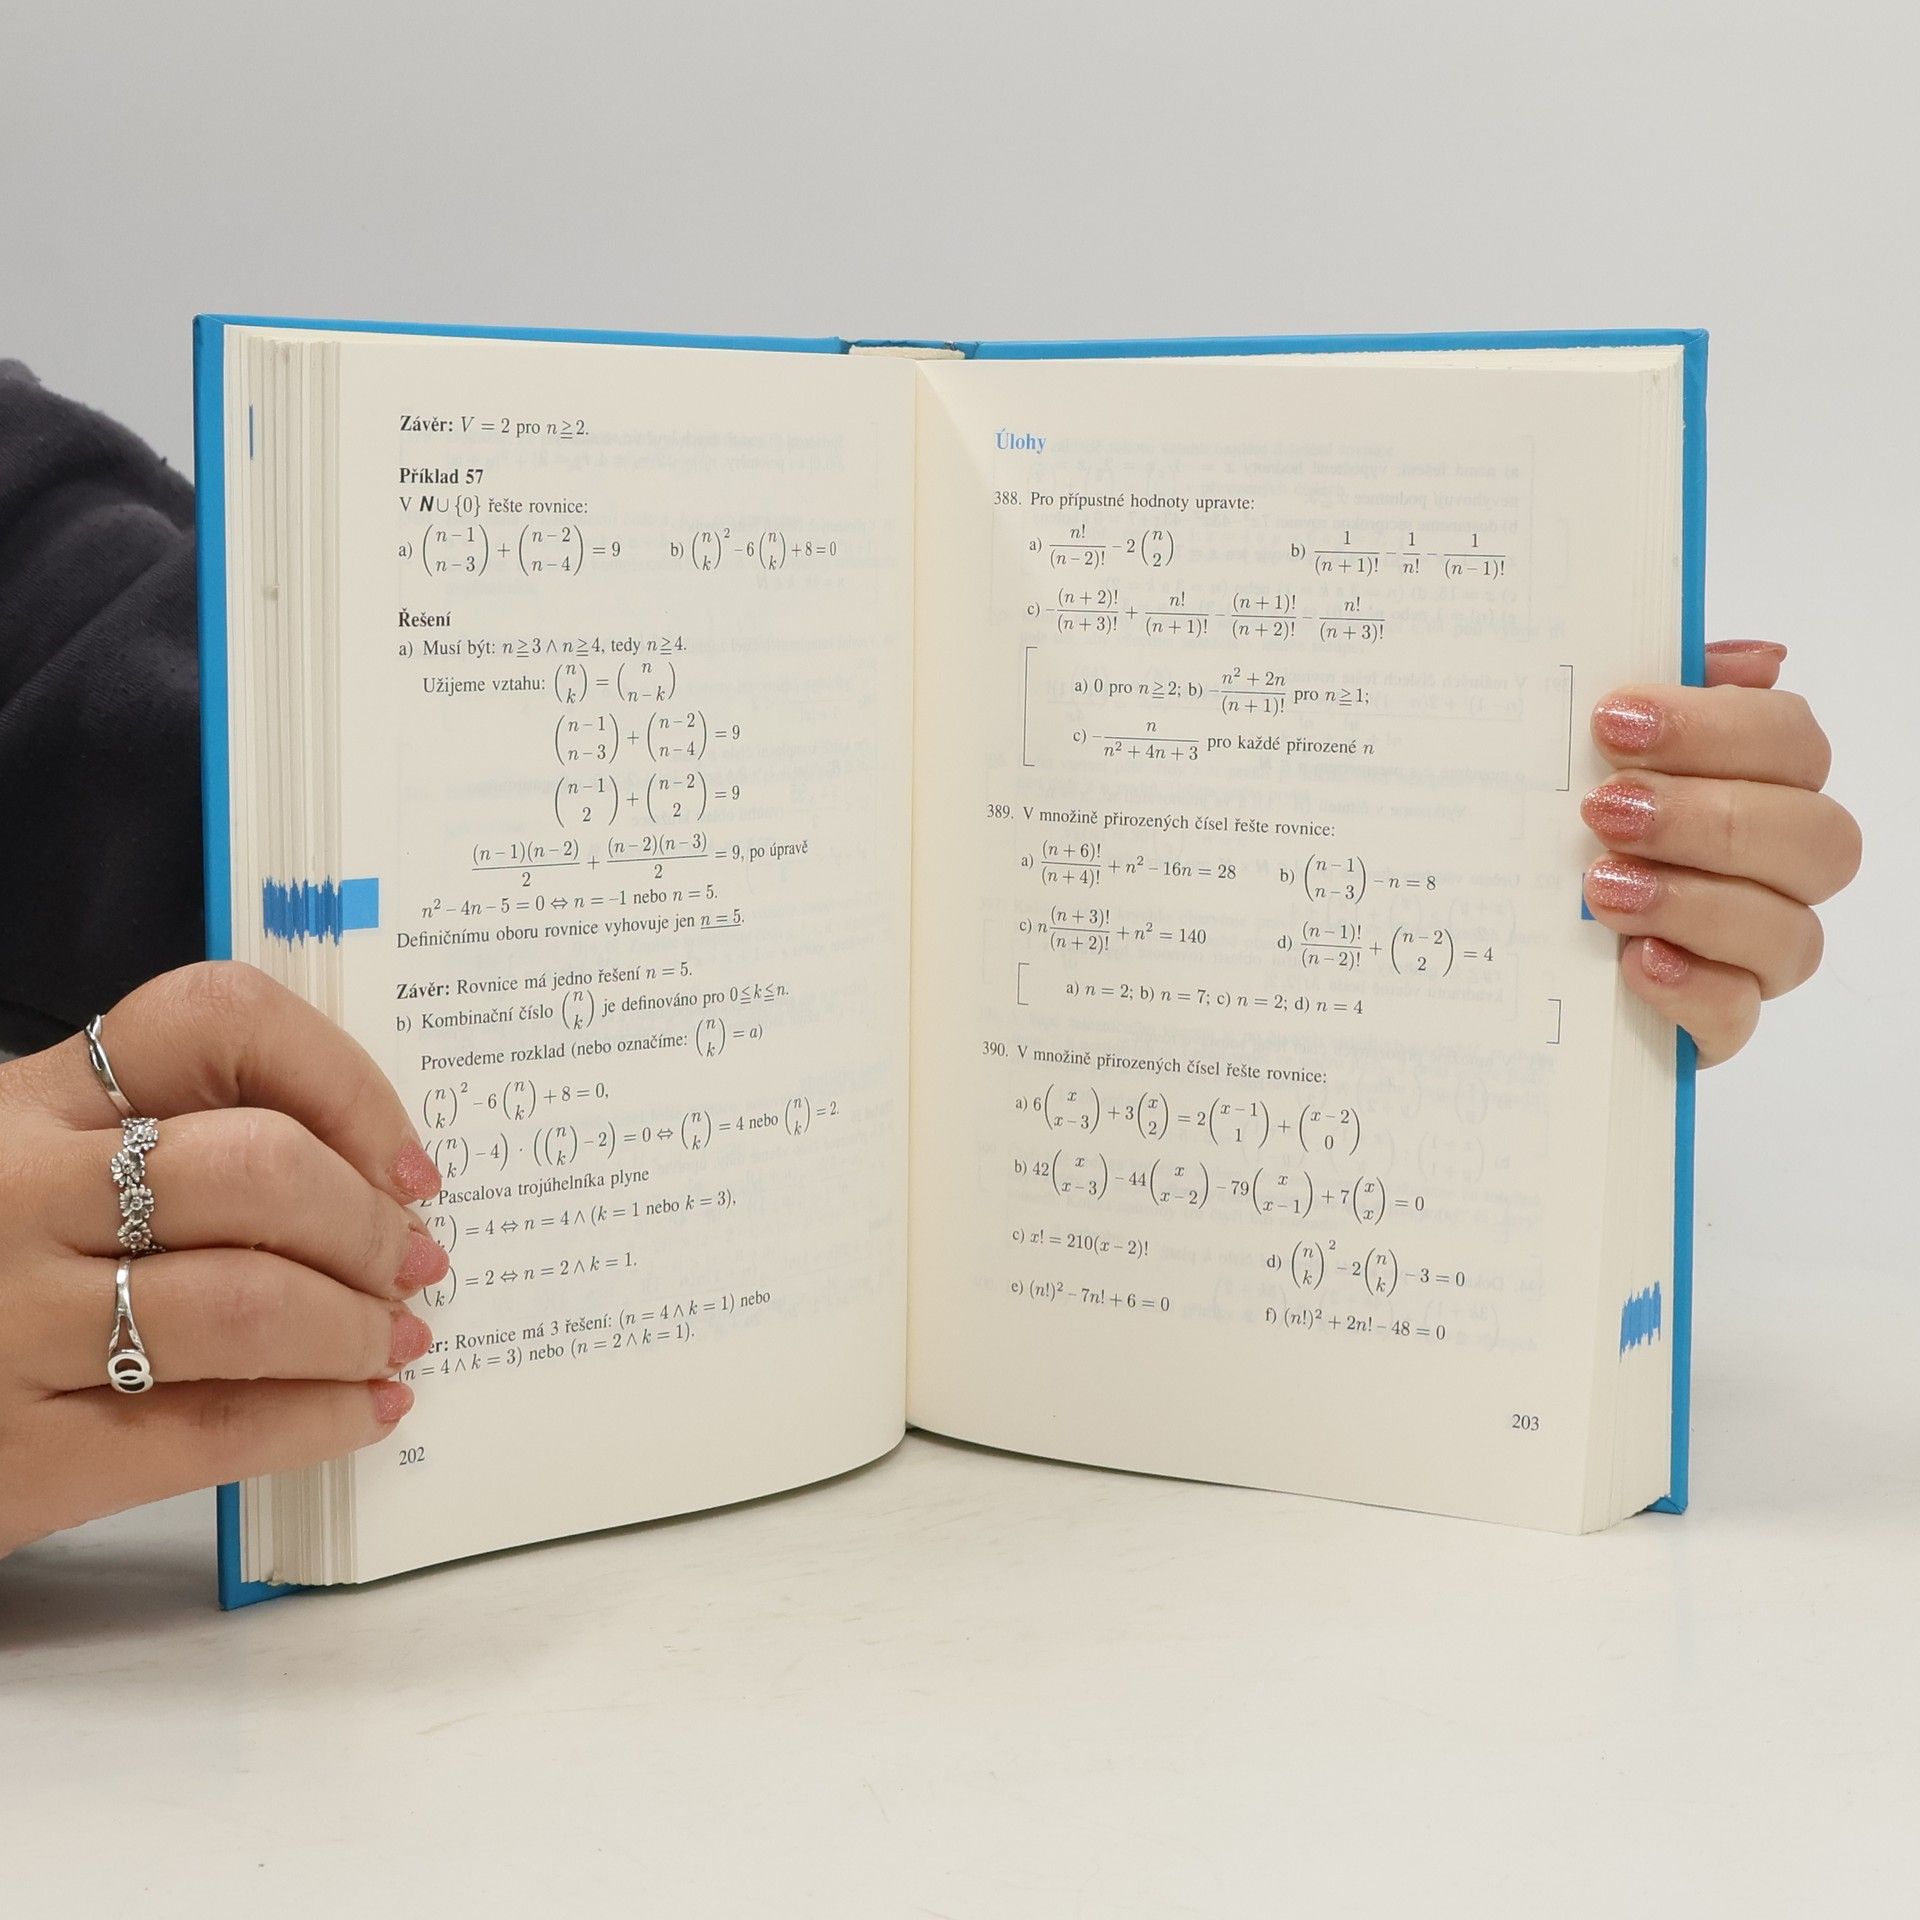 Závěr: V = 2 pro n ≧ 2.
Příklad 57
V N ∪ {0} řešte rovnice:
a) (n − 1 / n − 3) + (n − 2 / n − 4) = 9 b) (n / k)² − 6 (n / k) + 8 = 0
Řešení
a) Musí být: n ≧ 3 ∧ n ≧ 4, tedy n ≧ 4.
Užijeme vztahu: (n / k) = (n / n − k)
(n − 1 / n − 3) + (n − 2 / n − 4) = 9
(n − 1 / 2) + (n − 2 / 2) = 9
(n − 1)(n − 2) / 2 + (n − 2)(n − 3) / 2 = 9, po úpravě
n² − 4n − 5 = 0 ⇔ n = −1 nebo n = 5.
Definičnímu oboru rovnice vyhovuje jen n = 5.
Závěr: Rovnice má jedno řešení n = 5.
b) Kombinační číslo (n / k) je definováno pro 0 ≦ k ≦ n.
Provedeme rozklad (nebo označíme: (n / k) = a)
(n / k)² − 6 (n / k) + 8 = 0,
((n / k) − 4) · ((n / k) − 2) = 0 ⇔ (n / k) = 4 nebo (n / k) = 2.
Z Pascalova trojúhelníka plyne
(n / k) = 4 ⇔ n = 4 ∧ (k = 1 nebo k = 3),
k) = 2 ⇔ n = 2 ∧ k = 1.
er: Rovnice má 3 řešení: (n = 4 ∧ k = 1) nebo
(n = 4 ∧ k = 3) nebo (n = 2 ∧ k = 1).
202
Úlohy
388. Pro přípustné hodnoty upravte:
a) n! / (n − 2)! − 2 (n / 2) b) 1 / (n + 1)! − 1 / n! − 1 / (n − 1)!
c) − (n + 2)! / (n + 3)! + n! / (n + 1)! − (n + 1)! / (n + 2)! − n! / (n + 3)!
[a) 0 pro n ≧ 2; b) − n² + 2n / (n + 1)! pro n ≧ 1;
c) − n / n² + 4n + 3 pro každé přirozené n]
389. V množině přirozených čísel řešte rovnice:
a) (n + 6)! / (n + 4)! + n² − 16n = 28 b) (n − 1 / n − 3) − n = 8
c) n (n + 3)! / (n + 2)! + n² = 140 d) (n − 1)! / (n − 2)! + (n − 2 / 2) = 4
[a) n = 2; b) n = 7; c) n = 2; d) n = 4]
390. V množině přirozených čísel řešte rovnice:
a) 6 (x / x − 3) + 3 (x / 2) = 2 (x − 1 / 1) + (x − 2 / 0)
b) 42 (x / x − 3) − 44 (x / x − 2) − 79 (x / x − 1) + 7 (x / x) = 0
c) x! = 210(x − 2)! d) (n / k)² − 2 (n / k) − 3 = 0
e) (n!)² − 7n! + 6 = 0 f) (n!)² + 2n! − 48 = 0
203